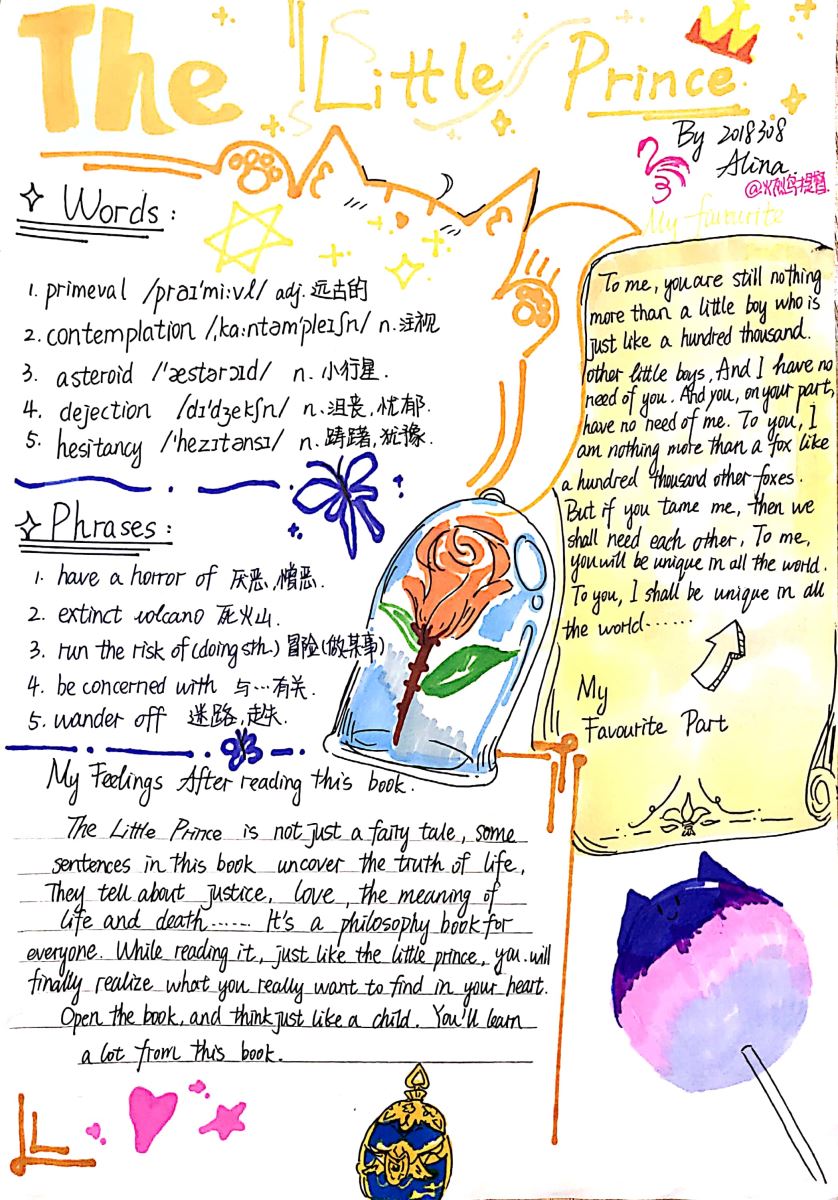 The Little Prince
By 201808
Alina
My favourite
Words:
1. primeval /praɪ'mi:vl/ adj. 远古的
2. contemplation /ˌka:ntəm'pleɪʃn/ n. 注视
3. asteroid /'æstərɔɪd/ n. 小行星.
4. dejection /dɪ'dʒekʃn/ n. 沮丧, 忧郁.
5. hesitancy /'hezɪtənsɪ/ n. 踌躇, 犹豫.
Phrases:
1. have a horror of 厌恶, 憎恶.
2. extinct volcano 死火山.
3. run the risk of (doing sth.) 冒险(做某事)
4. be concerned with 与…有关.
5. wander off 迷路, 走失.
To me, you are still nothing
more than a little boy who is
just like a hundred thousand.
other little boys. And I have no
need of you. And you, on your part,
have no need of me. To you, I
am nothing more than a fox like
a hundred thousand other foxes.
But if you tame me, then we
shall need each other. To me,
you will be unique in all the world.
To you, I shall be unique in all
the world......
My
Favourite Part
My Feelings After reading this book.
The Little Prince is not just a fairy tale, some
sentences in this book uncover the truth of life,
They tell about justice, love, the meaning of
life and death...... It's a philosophy book for
everyone. While reading it, just like the little prince, you will
finally realize what you really want to find in your heart.
Open the book, and think just like a child. You'll learn
a lot from this book.